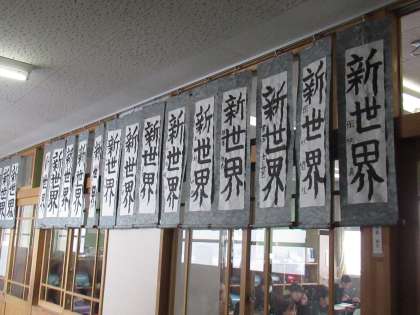 新世界
新世界
新世界
新世界
新世界
新世界
新世界
新世界
新世界
新世界
新世界
新世界
新世界